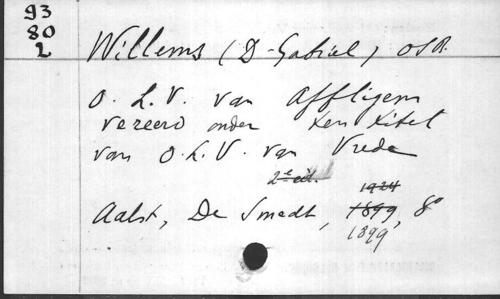 93
80
2
Willems (D. Gabriel) OSB.
O. L. V. van Affligem
vereerd onder den titel
van O. L. V. van Vrede
2e ed.
1924
Aalst, De Smedt, 1899, 8°
1899